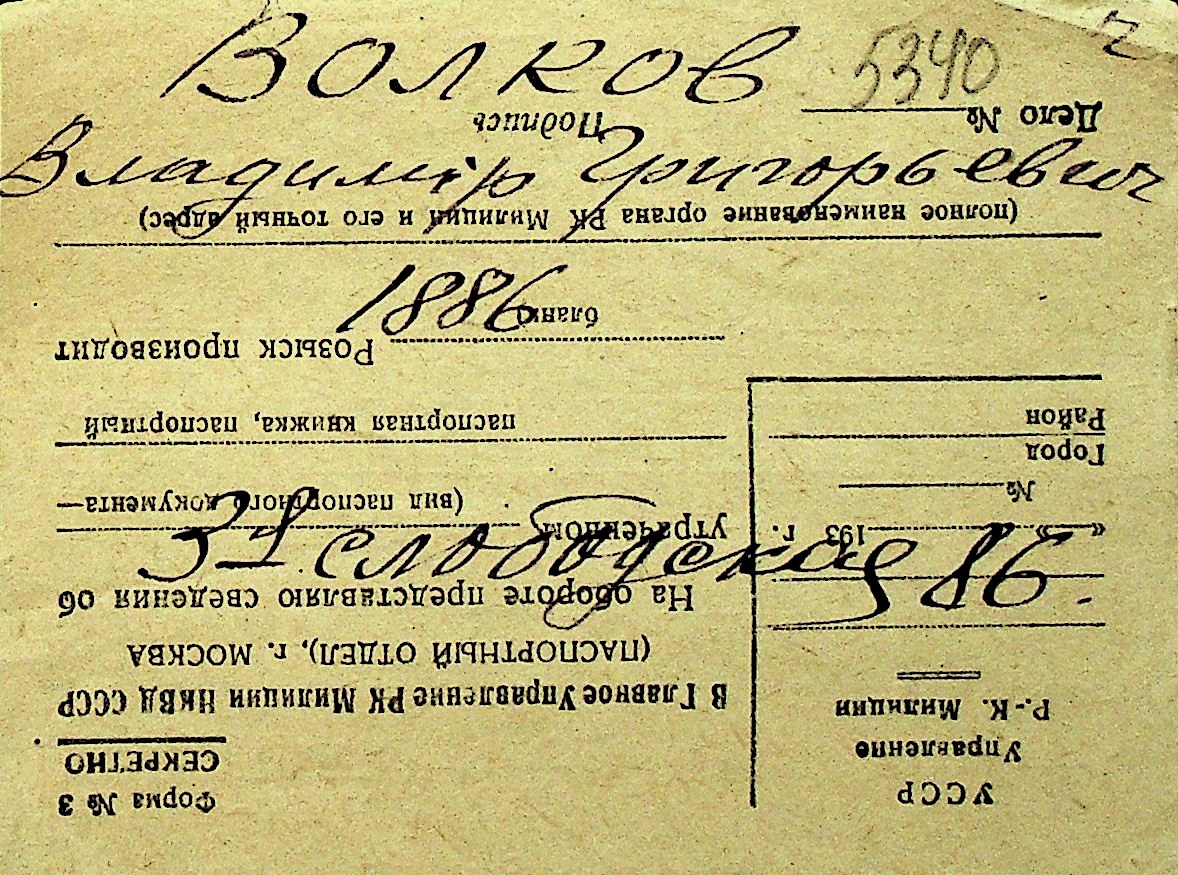 Волков
5340
Владимір Григорьевич
1886
3-я слободская 86.
УССР
Управление
Р.-К. Милиции
"   " 193   г.
№
Город
Район
Форма № 3
СЕКРЕТНО
В Главное Управление РК Милиции НКВД СССР
(ПАСПОРТНЫЙ ОТДЕЛ), г. МОСКВА
На обороте представляю сведения об
утраченном
(вид паспортного документа—
паспортная книжка, паспортный
бланк)
Розыск производит
(полное наименование органа РК Милиции и его точный адрес)
Дело №
Подпись